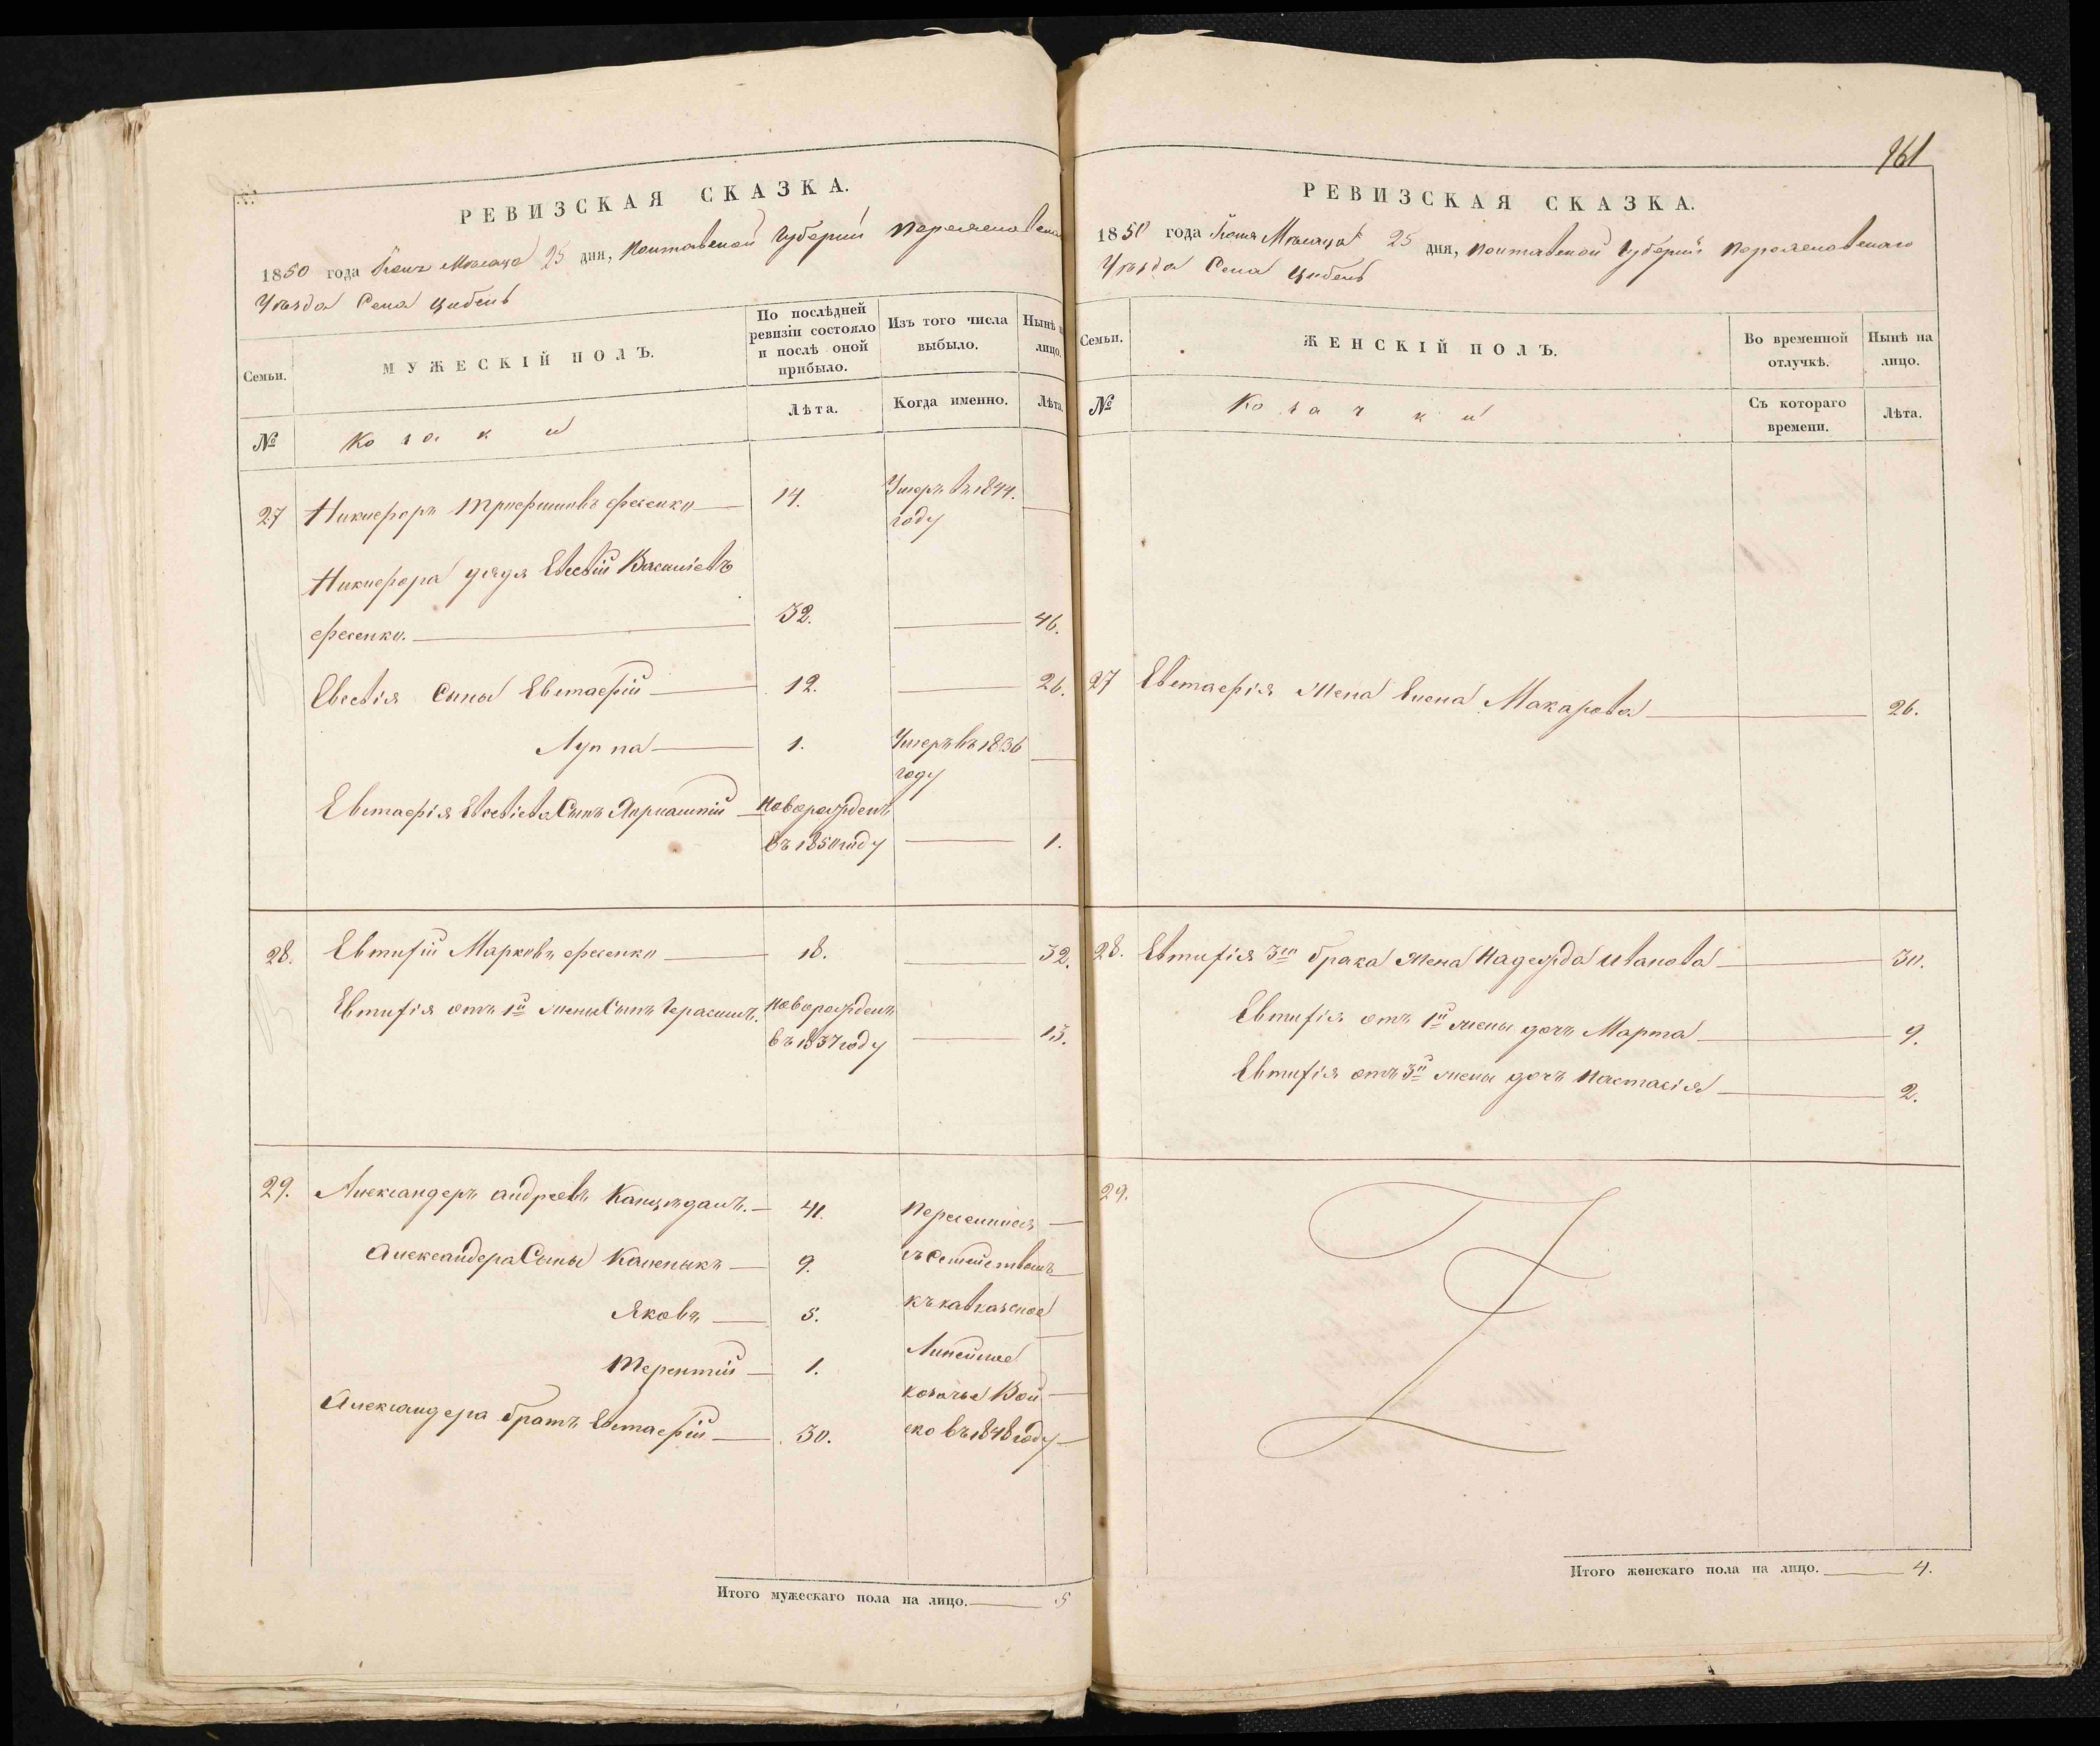 РЕВИЗСКАЯ СКАЗКА.
1850 года Мѣсяца 25 дня, Полтавской Губерніи Переяславскаго
Уѣзда Села Цибель
Семьи.
МУЖЕСКІЙ ПОЛЪ.
По послѣдней ревизіи состояло и послѣ оной прибыло.
Изъ того числа выбыло.
Нынѣ на лицо.
№
Козаки
Лѣта.
Когда именно.
Лѣта.
27 Никифоръ Трифоновъ Фесенко 14. Умеръ въ 1844.
году
Никифора дядя Евсевій Васильевъ
Фесенко. 32. 46.
Евсевія Сыны Евстафій 12. 26.
Луппа 1. Умеръ въ 1836
году
Евстафія Евсевіева Сынъ Новорожденъ
въ 1850 году 1.
28. Евтифій Марковъ Фесенко 18. 32.
Евтифія отъ 1й жены Сынъ Герасимъ. Новорожденъ
въ 1837 году 13.
29. Александеръ Андреевъ Канцѣдалъ. 41. Переселился
Александера Сыны Каленыкъ 9. съ Семействомъ
Яковъ 5. въ Кавказское
Терентій 1. Линейное
козачье Вой
Александера братъ Евстафій 30. ско въ 1848 году
Итого мужескаго пола на лицо. 5
161
РЕВИЗСКАЯ СКАЗКА.
1850 года Мѣсяца 25 дня, Полтавской Губерніи Переяславскаго
Уѣзда Села Цибель
Семьи.
ЖЕНСКІЙ ПОЛЪ.
Во временной отлучкѣ.
Нынѣ на лицо.
№
Козачки
Съ котораго времени.
Лѣта.
27 Евстафія Жена Елена Макарова 26.
28. Евтифія 3го брака Жена Надежда Иванова 30.
Евтифія отъ 1й жены дочь Марта 9.
Евтифія отъ 3й жены дочь Настасія 2.
29.
Итого женскаго пола на лицо. 4.